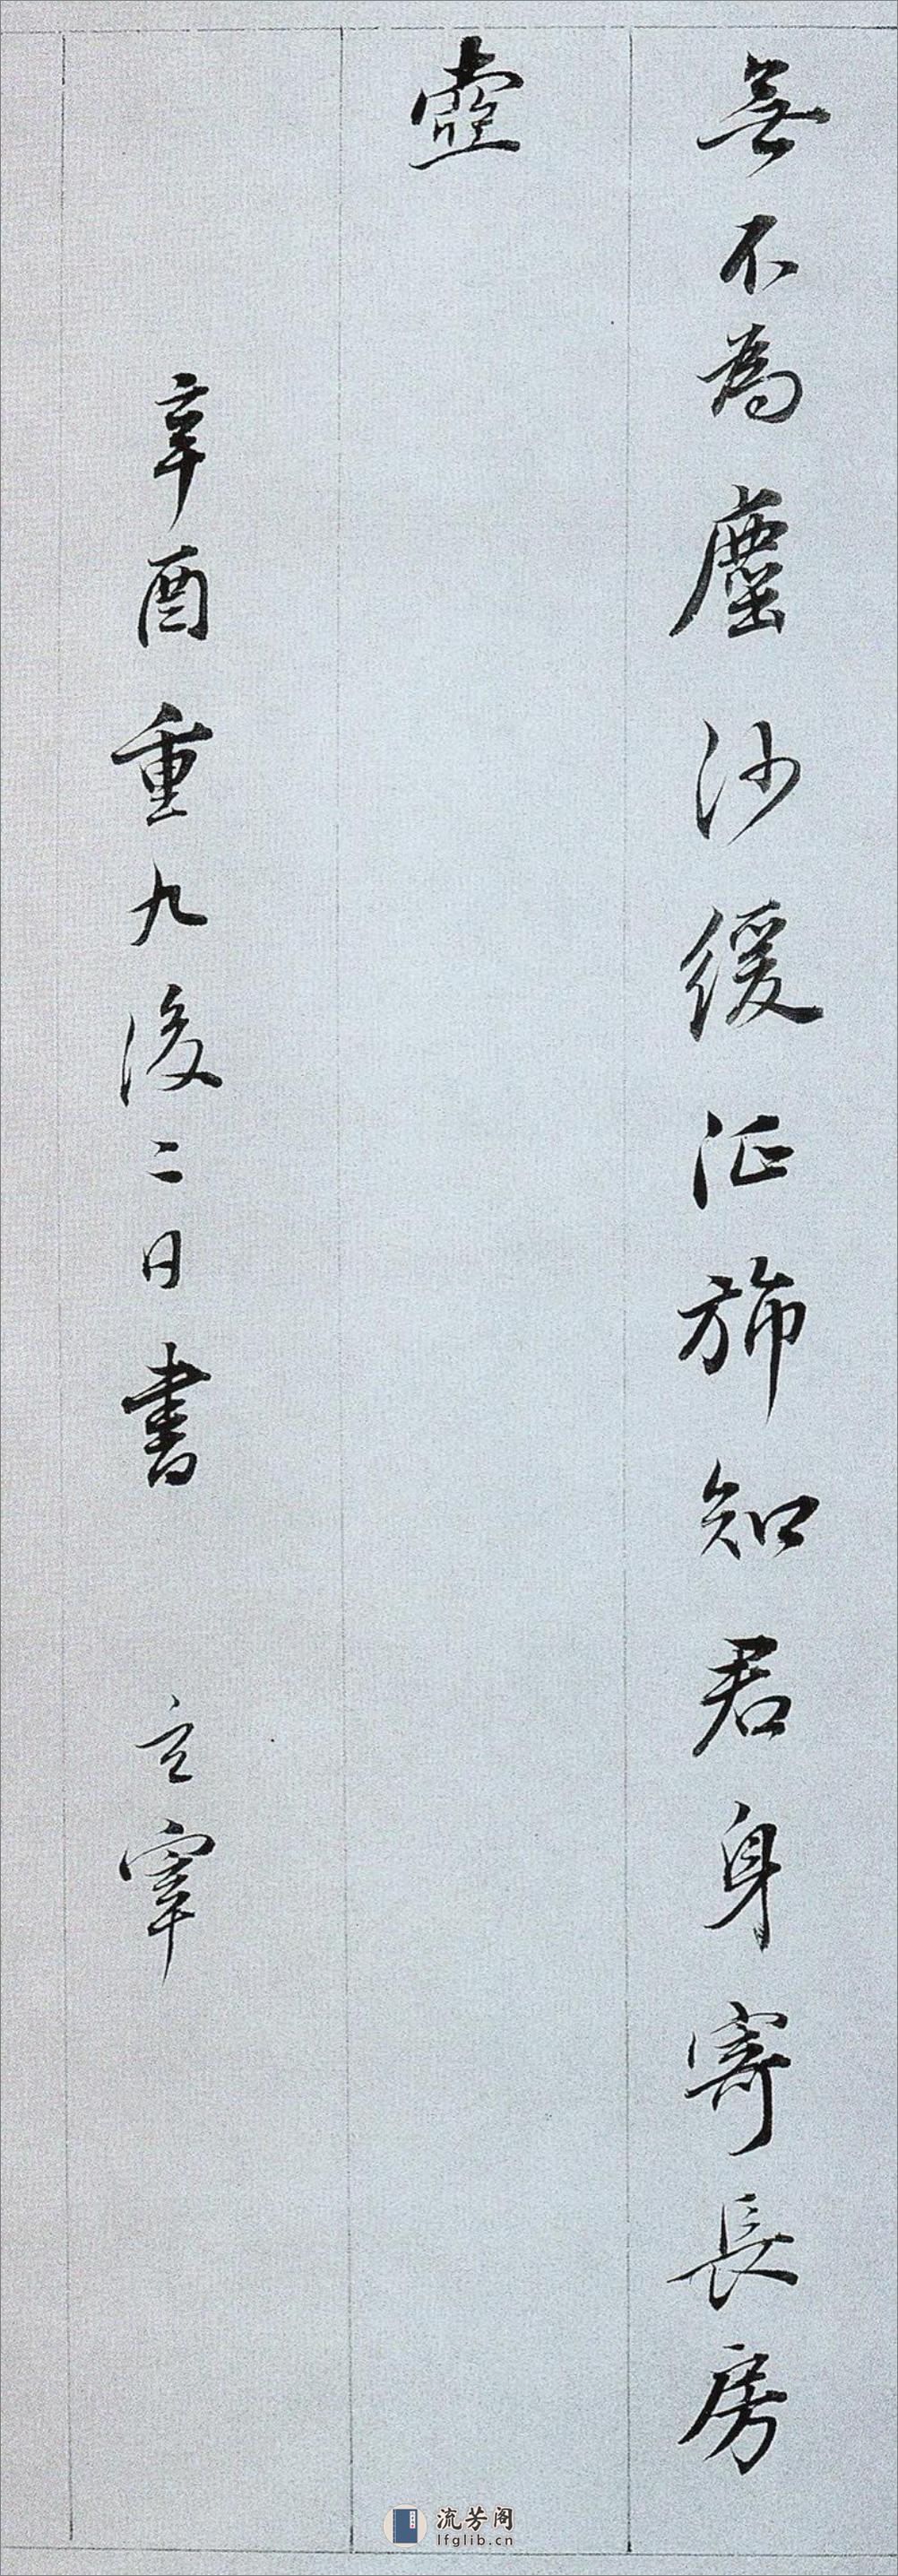 無不為塵沙緩征旆知君身寄長房
壺
辛酉重九後二日書 立宰
流芳阁
lfglib.cn